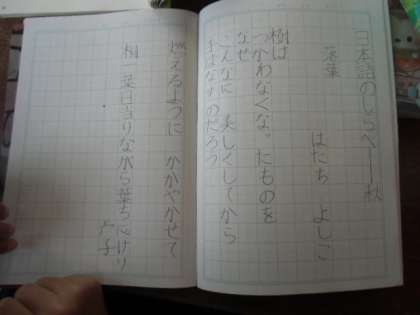 日本語のしらべ――秋
落葉
はたち よしこ
樹は
つかわなくなったものを
なぜ
こんなに 美しくしてから
手ばなすのだろう
燃えるように かがやかせて
桐一葉日当りながら落ちにけり
虚子